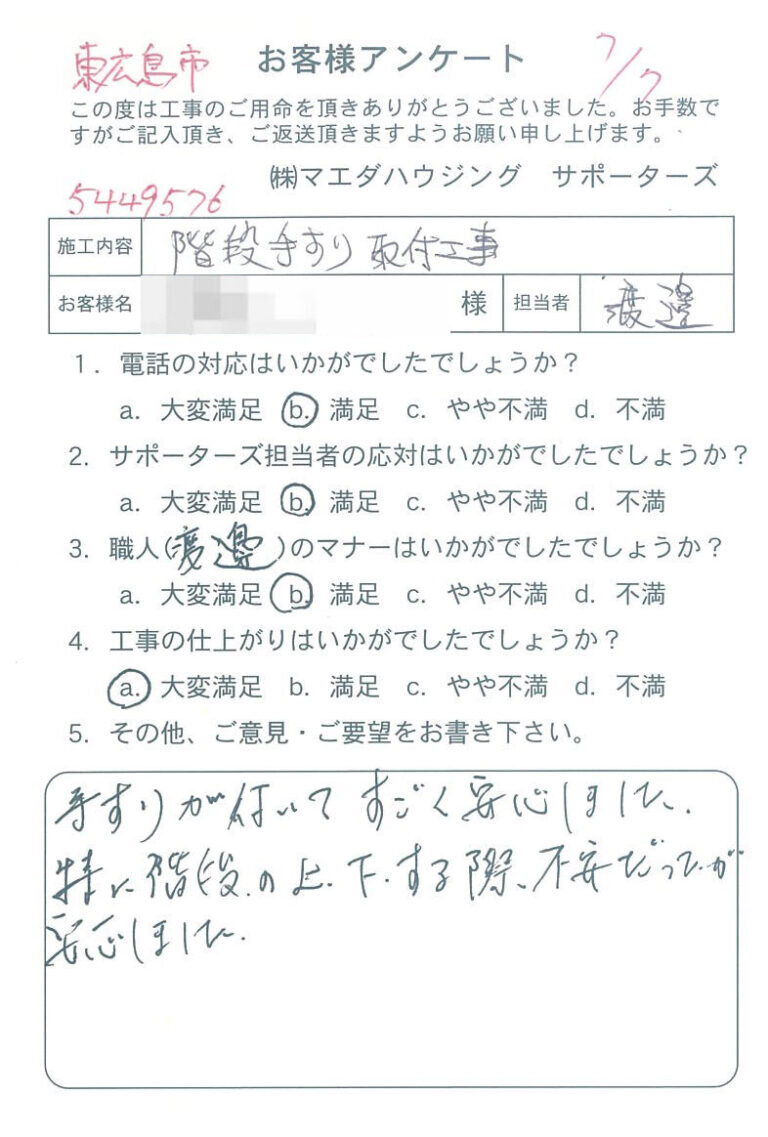 東広島市 お客様アンケート 7/7
この度は工事のご用命を頂きありがとうございました。お手数で
すがご記入頂き、ご返送頂きますようお願い申し上げます。
㈱マエダハウジング サポーターズ
5449576
施工内容 階段手すり取付工事
お客様名 様 担当者 渡邉
1. 電話の対応はいかがでしたでしょうか？
a. 大変満足 b. 満足 c. やや不満 d. 不満
2. サポーターズ担当者の応対はいかがでしたでしょうか？
a. 大変満足 b. 満足 c. やや不満 d. 不満
3. 職人(渡邉)のマナーはいかがでしたでしょうか？
a. 大変満足 b. 満足 c. やや不満 d. 不満
4. 工事の仕上がりはいかがでしたでしょうか？
a. 大変満足 b. 満足 c. やや不満 d. 不満
5. その他、ご意見・ご要望をお書き下さい。
手すりが付いてすごく安心しました.
特に階段の上.下.する際、不安だったが
安心しました.